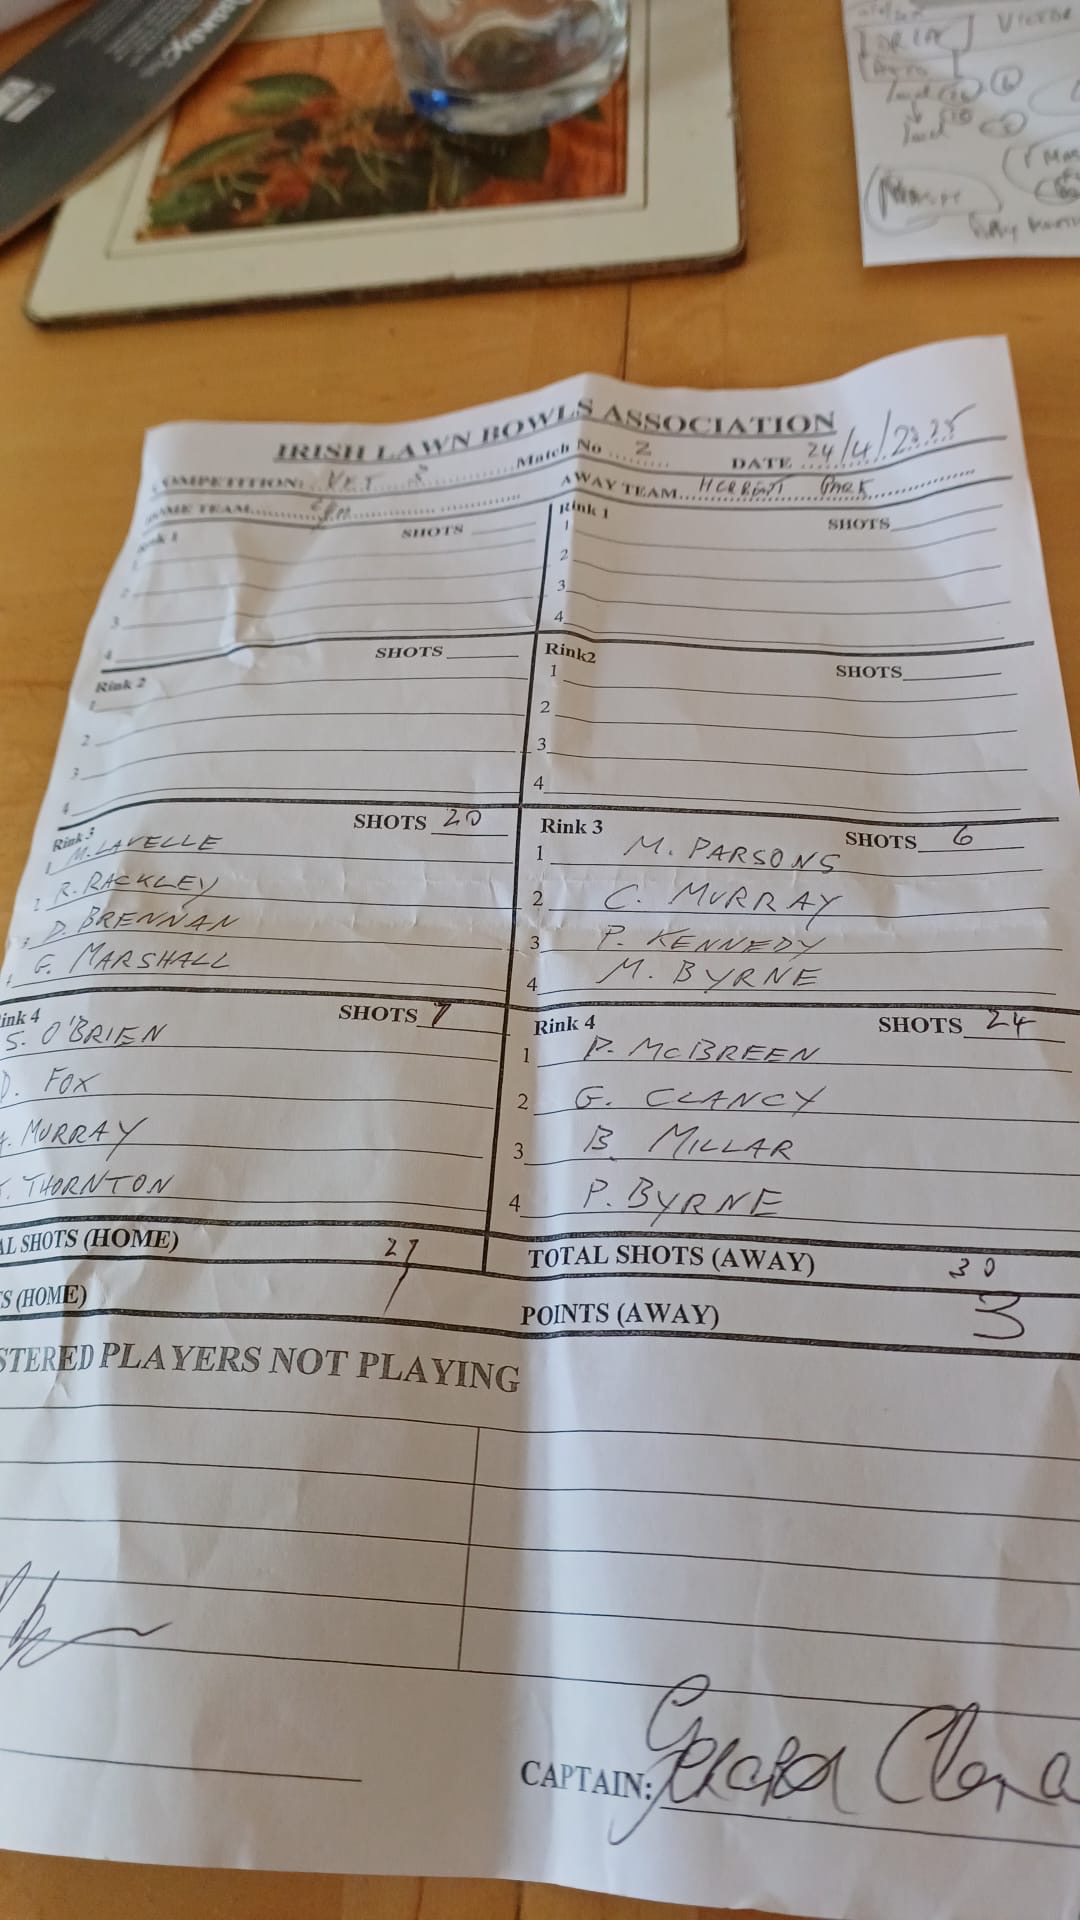 VICTOR
IRISH LAWN BOWLS ASSOCIATION
COMPETITION: VET Match No 2 DATE 24/4/2025
HOME TEAM AWAY TEAM HERBERT PARK
Rink 1 SHOTS Rink 1 SHOTS
1 1
2 2
3 3
4 4
Rink 2 SHOTS Rink2 SHOTS
1 1
2 2
3 3
4 4
Rink 3 SHOTS 20 Rink 3 SHOTS 6
1 M. LAVELLE 1 M. PARSONS
2 R. RACKLEY 2 C. MURRAY
3 D. BRENNAN 3 P. KENNEDY
4 G. MARSHALL 4 M. BYRNE
ink 4 SHOTS 7 Rink 4 SHOTS 24
S. O'BRIEN 1 P. McBREEN
D. FOX 2 G. CLANCY
MURRAY 3 B. MILLAR
THORNTON 4 P. BYRNE
AL SHOTS (HOME) 27 TOTAL SHOTS (AWAY) 30
S (HOME) POINTS (AWAY) 3
STERED PLAYERS NOT PLAYING
CAPTAIN: Gerard Clanc